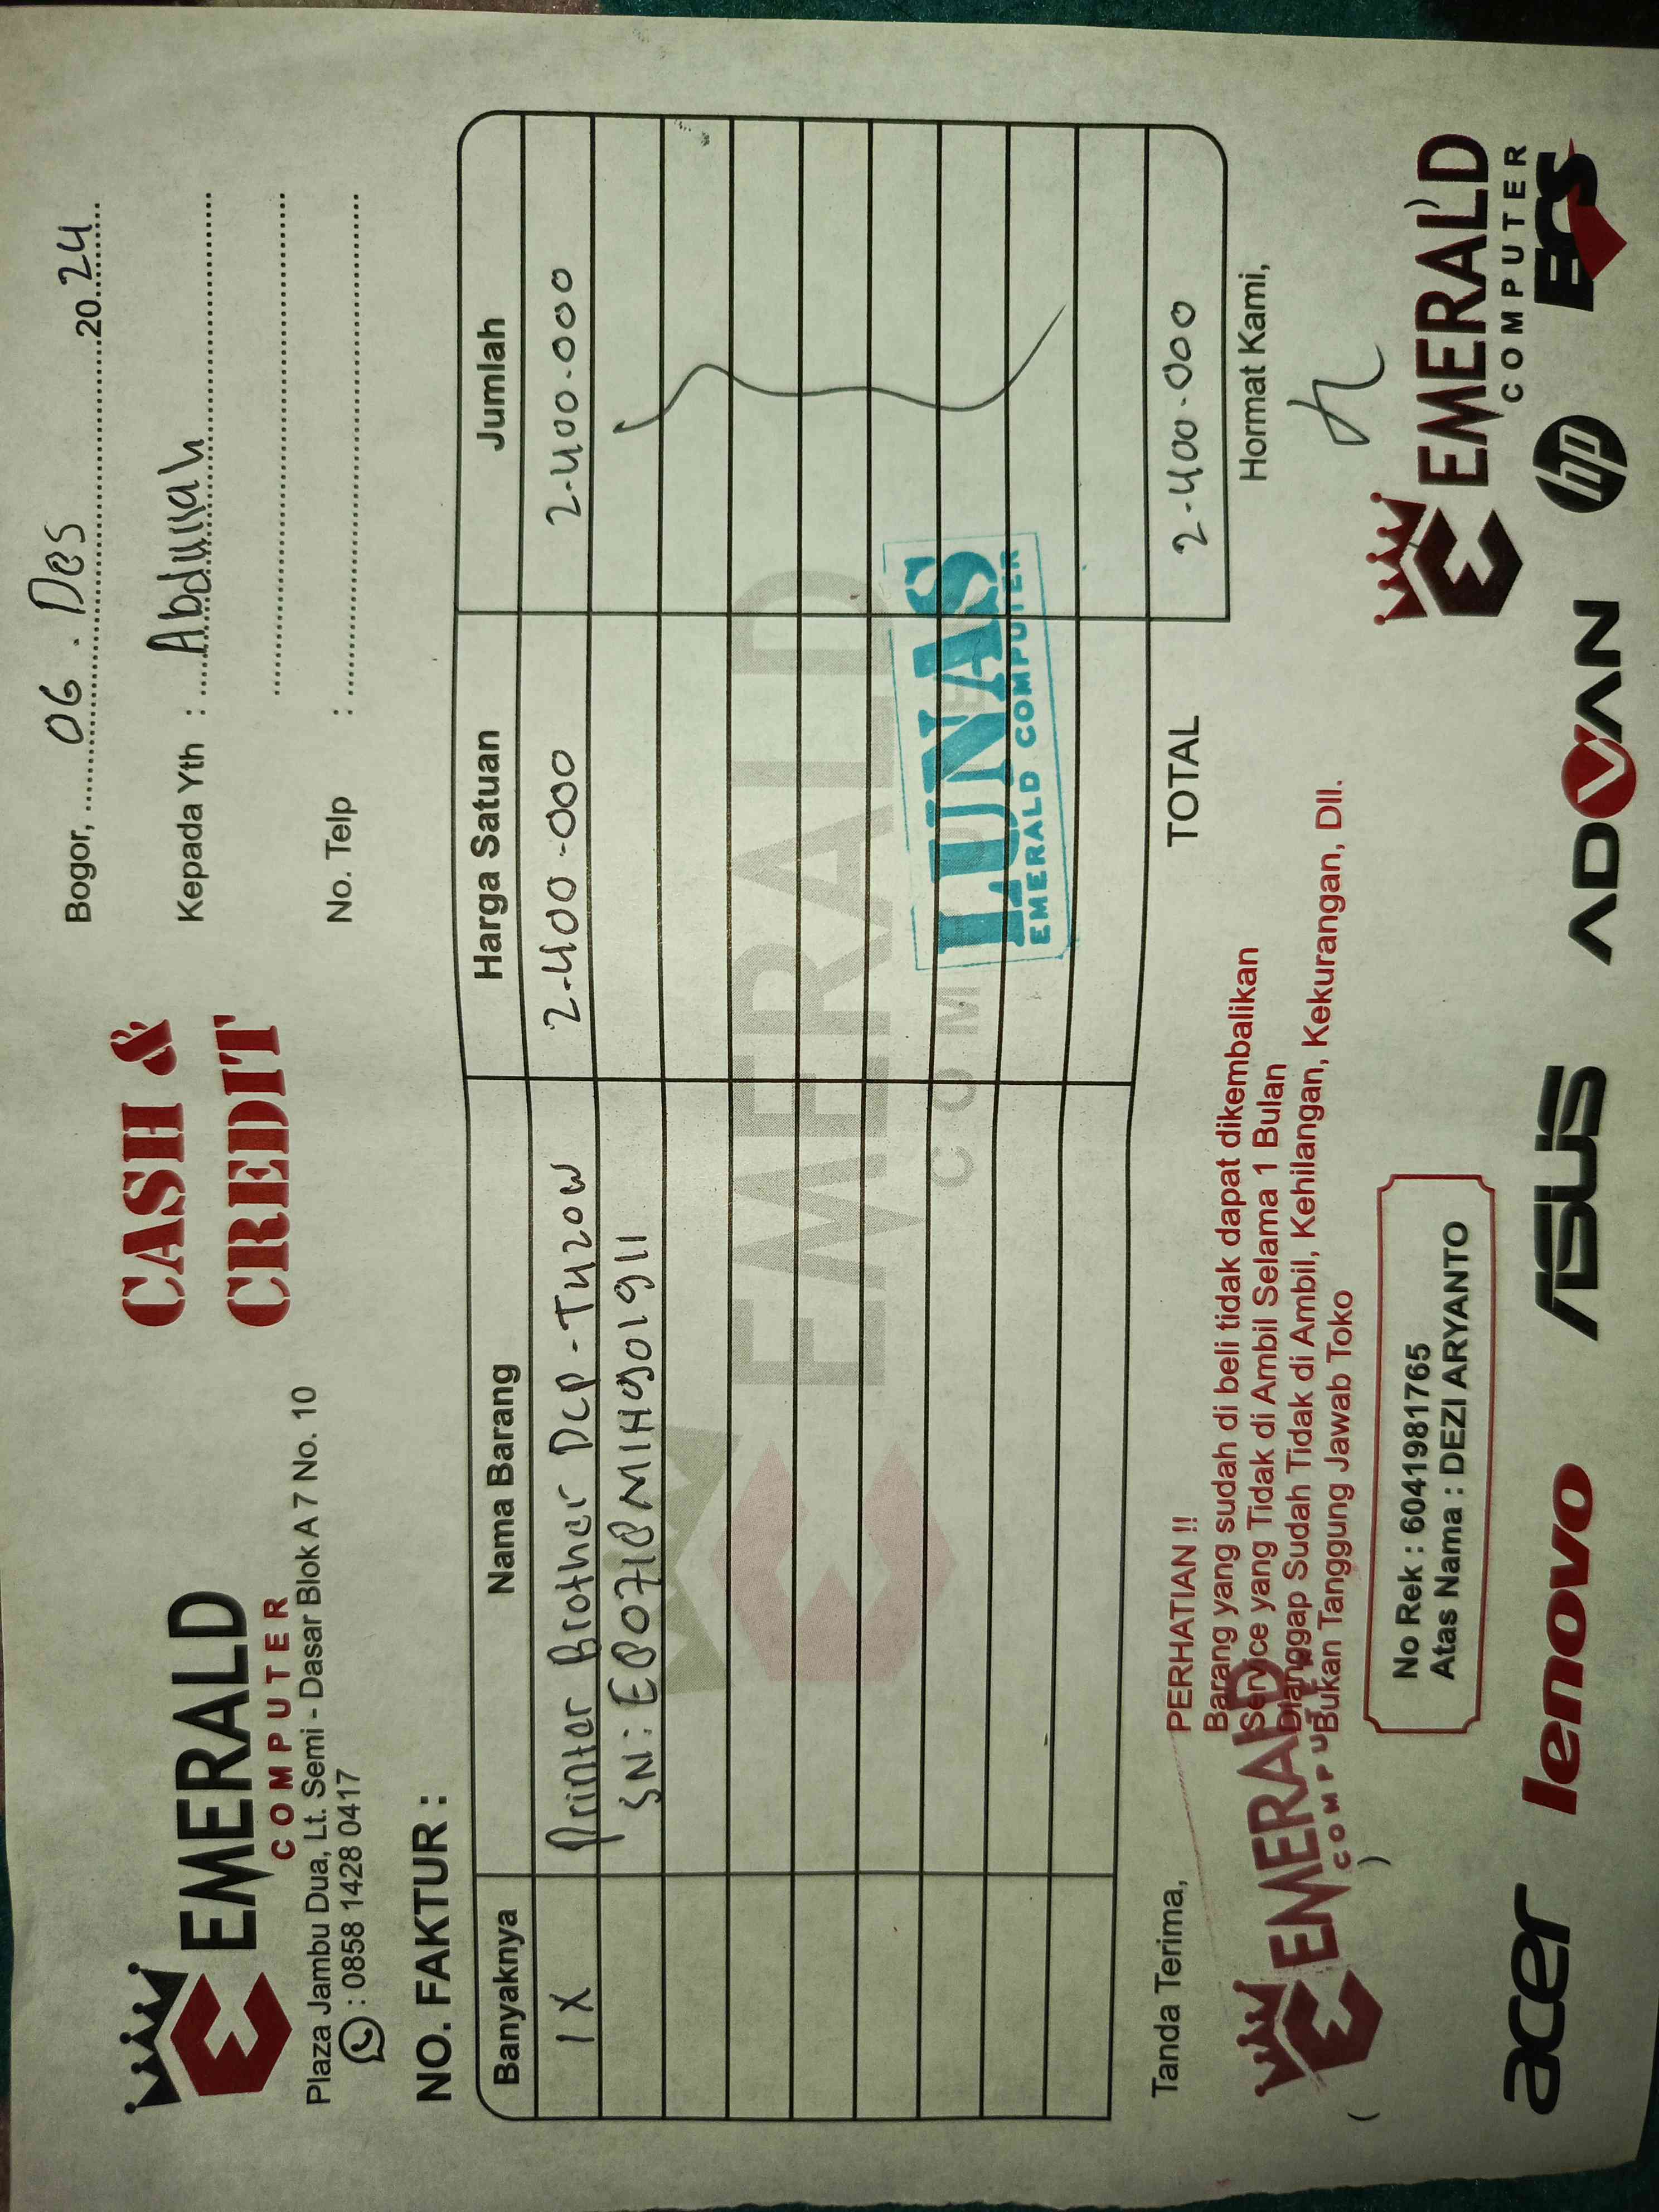 EMERALD
COMPUTER
Plaza Jambu Dua, Lt. Semi - Dasar Blok A 7 No. 10
: 0858 1428 0417
CASH &
CREDIT
Bogor, 06 . Des 20 24
Kepada Yth : Abdullah
No. Telp :
NO. FAKTUR :
Banyaknya Nama Barang Harga Satuan Jumlah
1 X Printer Brother DCP - T420W 2-400-000 2-400-000
SN: E80718M1H901911
EMERALD
COM
LUNAS
EMERALD COMPUTER
TOTAL 2-400-000
Tanda Terima,
Hormat Kami,
PERHATIAN !!
Barang yang sudah di beli tidak dapat dikembalikan
Service yang Tidak di Ambil Selama 1 Bulan
Dianggap Sudah Tidak di Ambil, Kehilangan, Kekurangan, Dll.
Bukan Tanggung Jawab Toko
EMERALD
COMPUTE
No Rek : 6041981765
Atas Nama : DEZI ARYANTO
EMERALD
COMPUTER
acer lenovo ASUS ADVAN hp ECS